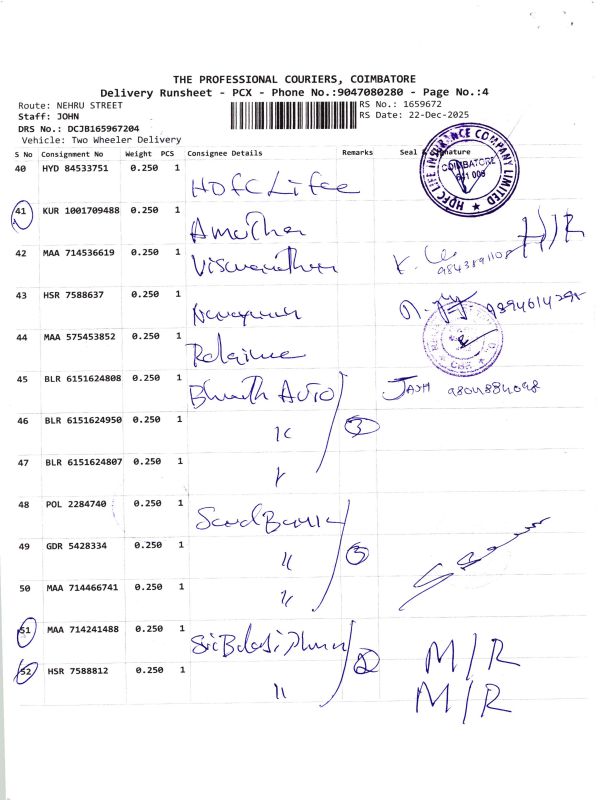 THE PROFESSIONAL COURIERS, COIMBATORE
Delivery Runsheet - PCX - Phone No.:9047080280 - Page No.:4
Route: NEHRU STREET
RS No.: 1659672
Staff: JOHN
RS Date: 22-Dec-2025
DRS No.: DCJB165967204
Vehicle: Two Wheeler Delivery
S No Consignment No Weight PCS Consignee Details Remarks Seal & Signature
HDFC LIFE INSURANCE COMPANY LIMITED
COIMBATORE
40 HYD 84533751 0.250 1 HDFC Lifee
41 KUR 1001709488 0.250 1
42 MAA 714536619 0.250 1 Viswanathan
43 HSR 7588637 0.250 1
44 MAA 575453852 0.250 1
45 BLR 6151624808 0.250 1 Bharath Auto
46 BLR 6151624950 0.250 1 " 3
47 BLR 6151624807 0.250 1 "
48 POL 2284740 0.250 1
49 GDR 5428334 0.250 1 " 3
50 MAA 714466741 0.250 1 "
51 MAA 714241488 0.250 1 2 M/R
52 HSR 7588812 0.250 1 " M/R